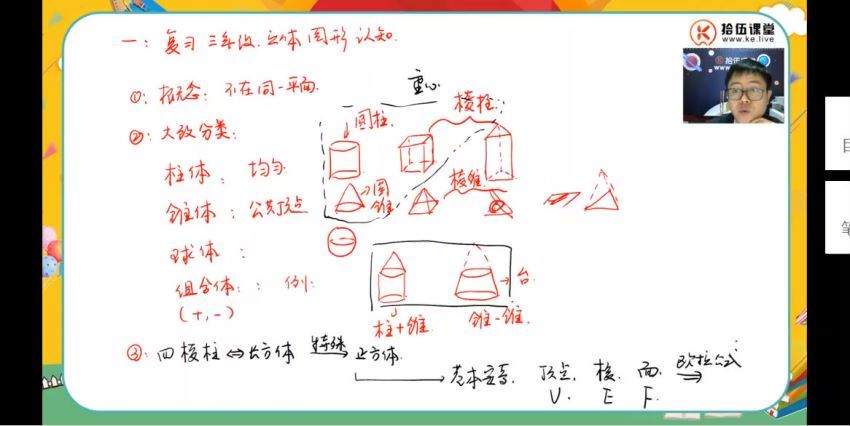 一: 复习 三年级. 立体图形认知.
拾伍课堂
www.ke.live
①: 概念: 不在同一平面.
重心
②: 大致分类:
圆柱
棱柱:
柱体: 均匀
→圆锥
棱锥
锥体: 公共顶点
球体:
组合体: 例:
(+,-)
→台.
柱+锥
锥-锥.
③: 四棱柱⇔长方体 特殊→ 正方体.
基本定, 顶点, 棱. 面. 欧拉公式
V. E F.
目
笔